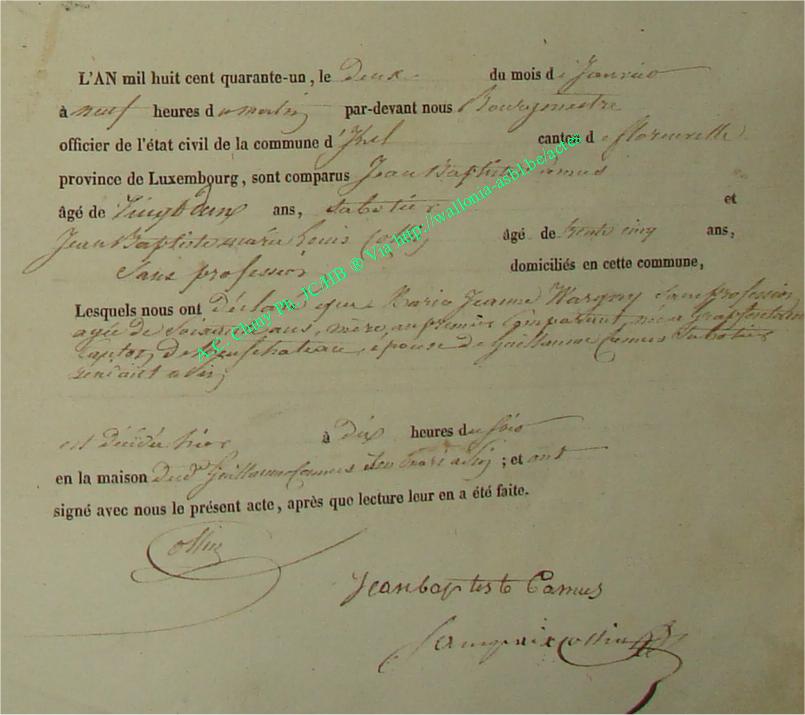 L'AN mil huit cent quarante-un, le deux du mois de Janvier
à neuf heures du matin par-devant nous Bourgmestre
officier de l'état civil de la commune d'Izel canton de florenville
province de Luxembourg, sont comparus Jean Baptiste Camus
âgé de Vingt Deux ans, Sabotier et
Jean Baptiste marie Louis Collin âgé de trente cinq ans,
Sans profession domiciliés en cette commune,
Lesquels nous ont déclaré que Marie Jeanne Wargny Sans profession
agée de Soixante ans, mère au premier Comparant née a grapfontaine
Canton de Neufchateau, épouse de Guillaume Camus Sabotier
est décédée hier à dix heures du soir
en la maison dudt Guillaume Camus ; et ont
signé avec nous le présent acte, après que lecture leur en a été faite.
Collin
Jean baptiste Camus
Collin
A.C. Chiny Ph. JC.HB ® Via http://wallonia-asbl.be/actes